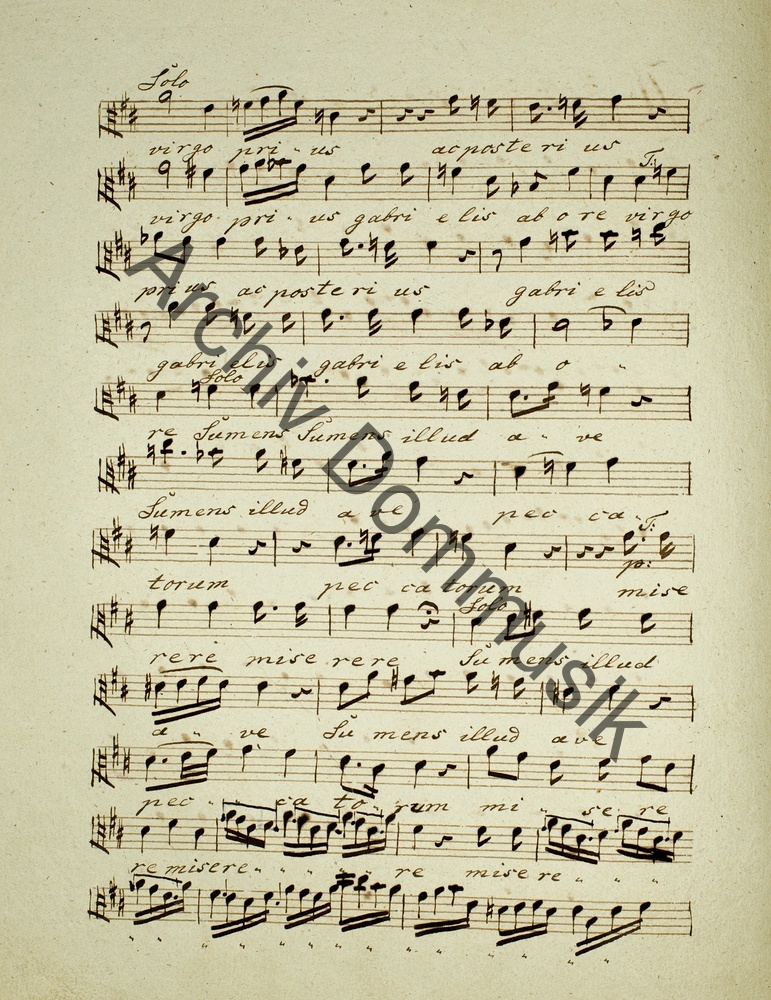 Solo
virgo pri " us ac posteri us
T:
virgo pri " us gabri elis ab o re virgo
pri us ac posteri us gabri e lis
gabri elis gabri e lis ab o "
Solo
re Sumens Sumens illud a " ve
Sumens illud a ve pec ca "
T:
p:
torum pec ca torum mise
Solo
rere mise rere Su mens illud
a " ve Su mens illud a ve
pec " " ca to " rum mi " se re
re misere " " " " re mise re " " " "
" " " " " " " " " " " " "
Archiv Dommusik